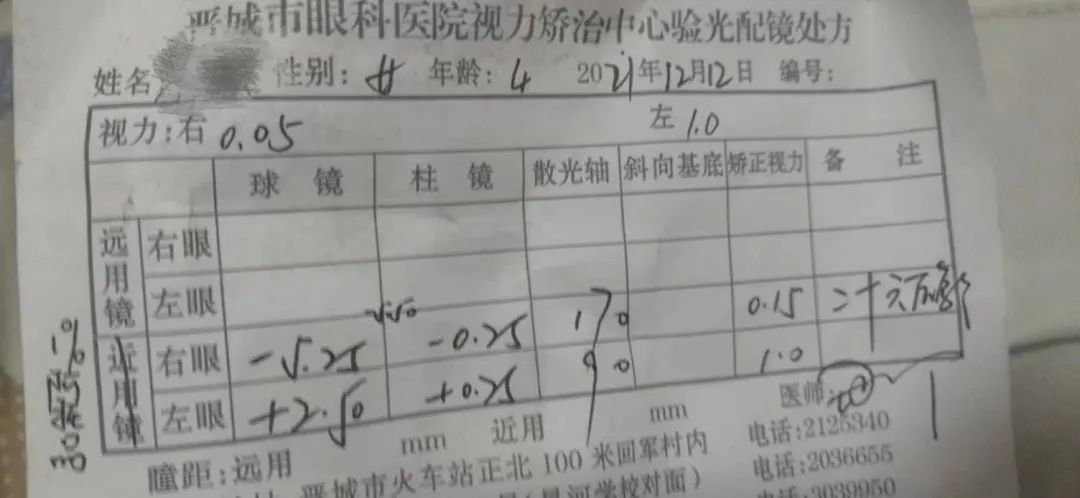 晋城市眼科医院视力矫治中心验光配镜处方
姓名 性别: 女 年龄: 4 2021年12月12日 编号:
视力:右 0.05 左 1.0
球 镜 柱 镜 散光轴 斜向基底 矫正视力 备 注
远用镜 右眼
左眼
近用镜 右眼 -5.25 -0.25 170 0.15
左眼 +2.50 +0.25 90 1.0
1%
瞳距:远用 mm 近用 mm 医师:
晋城市火车站正北100米回军村内 电话:2125340
星河学校对面) 电话:2036655
电话:2039950